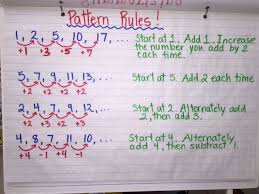 Pattern Rules!
1, 2, 5, 10, 17, ... Start at 1. Add 1. Increase
+1 +3 +5 +7 the number you add by 2
each time.
5, 7, 9, 11, 13, ... Start at 5. Add 2 each time
+2 +2 +2 +2
2, 4, 7, 9, 12, ... Start at 2. Alternately add
+2 +3 +2 +3 2, then add 3.
4, 8, 7, 11, 10, ... Start at 4. Alternately
+4 -1 +4 -1 add 4, then subtract 1.